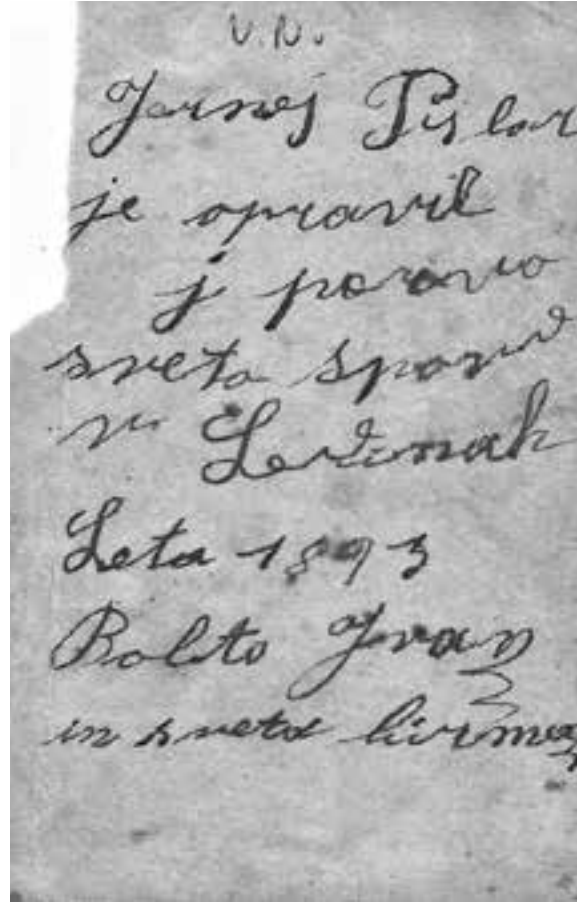 V. N.
Jarnej Pislar
je opravil
j poravo
sveto spovid
v Ledinah
Leta 1893
Bolito Jvan
in sveta birma